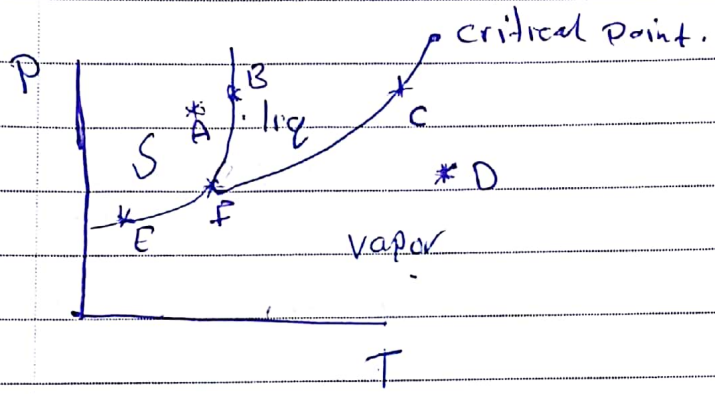 critical point.
P
B
A
liq
C
S
D
F
E
vapor
T